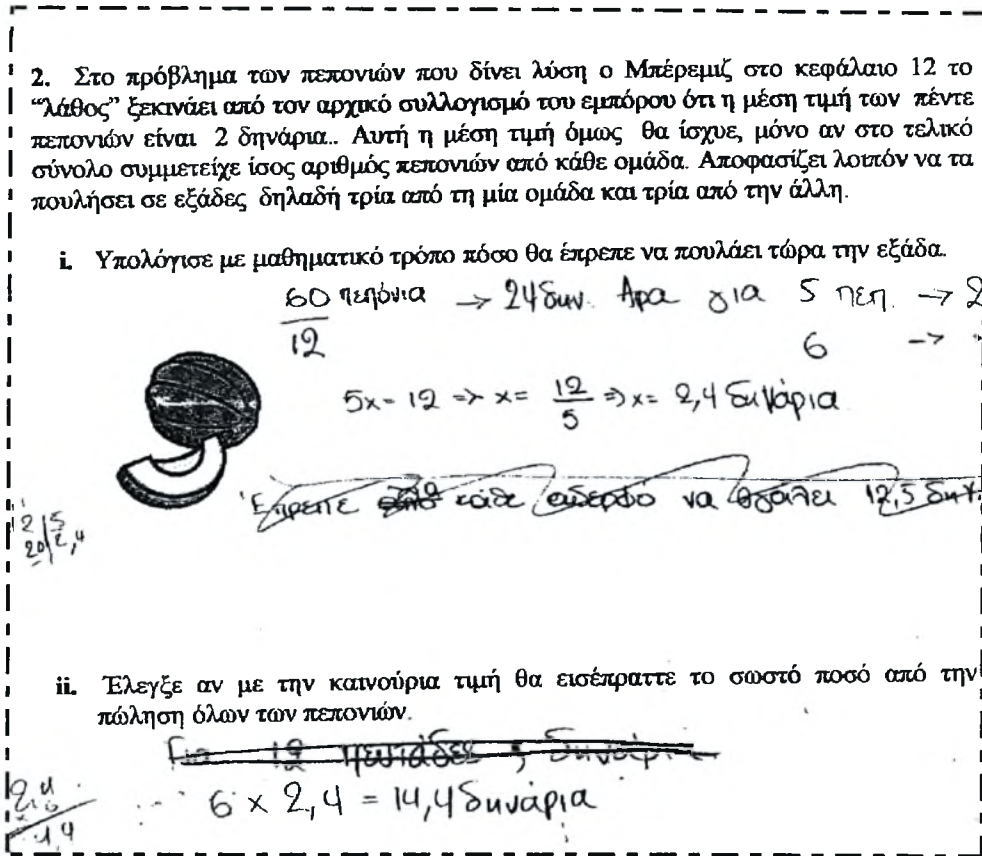 2. Στο πρόβλημα των πεπονιών που δίνει λύση ο Μπέρεμιζ στο κεφάλαιο 12 το
“λάθος” ξεκινάει από τον αρχικό συλλογισμό του εμπόρου ότι η μέση τιμή των πέντε
πεπονιών είναι 2 δηνάρια.. Αυτή η μέση τιμή όμως θα ίσχυε, μόνο αν στο τελικό
σύνολο συμμετείχε ίσος αριθμός πεπονιών από κάθε ομάδα. Αποφασίζει λοιπόν να τα
πουλήσει σε εξάδες δηλαδή τρία από τη μία ομάδα και τρία από την άλλη.
i. Υπολόγισε με μαθηματικό τρόπο πόσο θα έπρεπε να πουλάει τώρα την εξάδα.
60 πεπόνια → 24 δην. Αρα για 5 πεπ. → 2
12 6 →
5x = 12 => x = 12/5 => x = 2,4 δηνάρια
Έπρεπε κάθε να βγάλει 12,5 δην.
2 5
20 2,4
ii. Έλεγξε αν με την καινούρια τιμή θα εισέπραττε το σωστό ποσό από την
πώληση όλων των πεπονιών.
Για 12 δηνάρια
6 x 2,4 = 14,4 δηνάρια